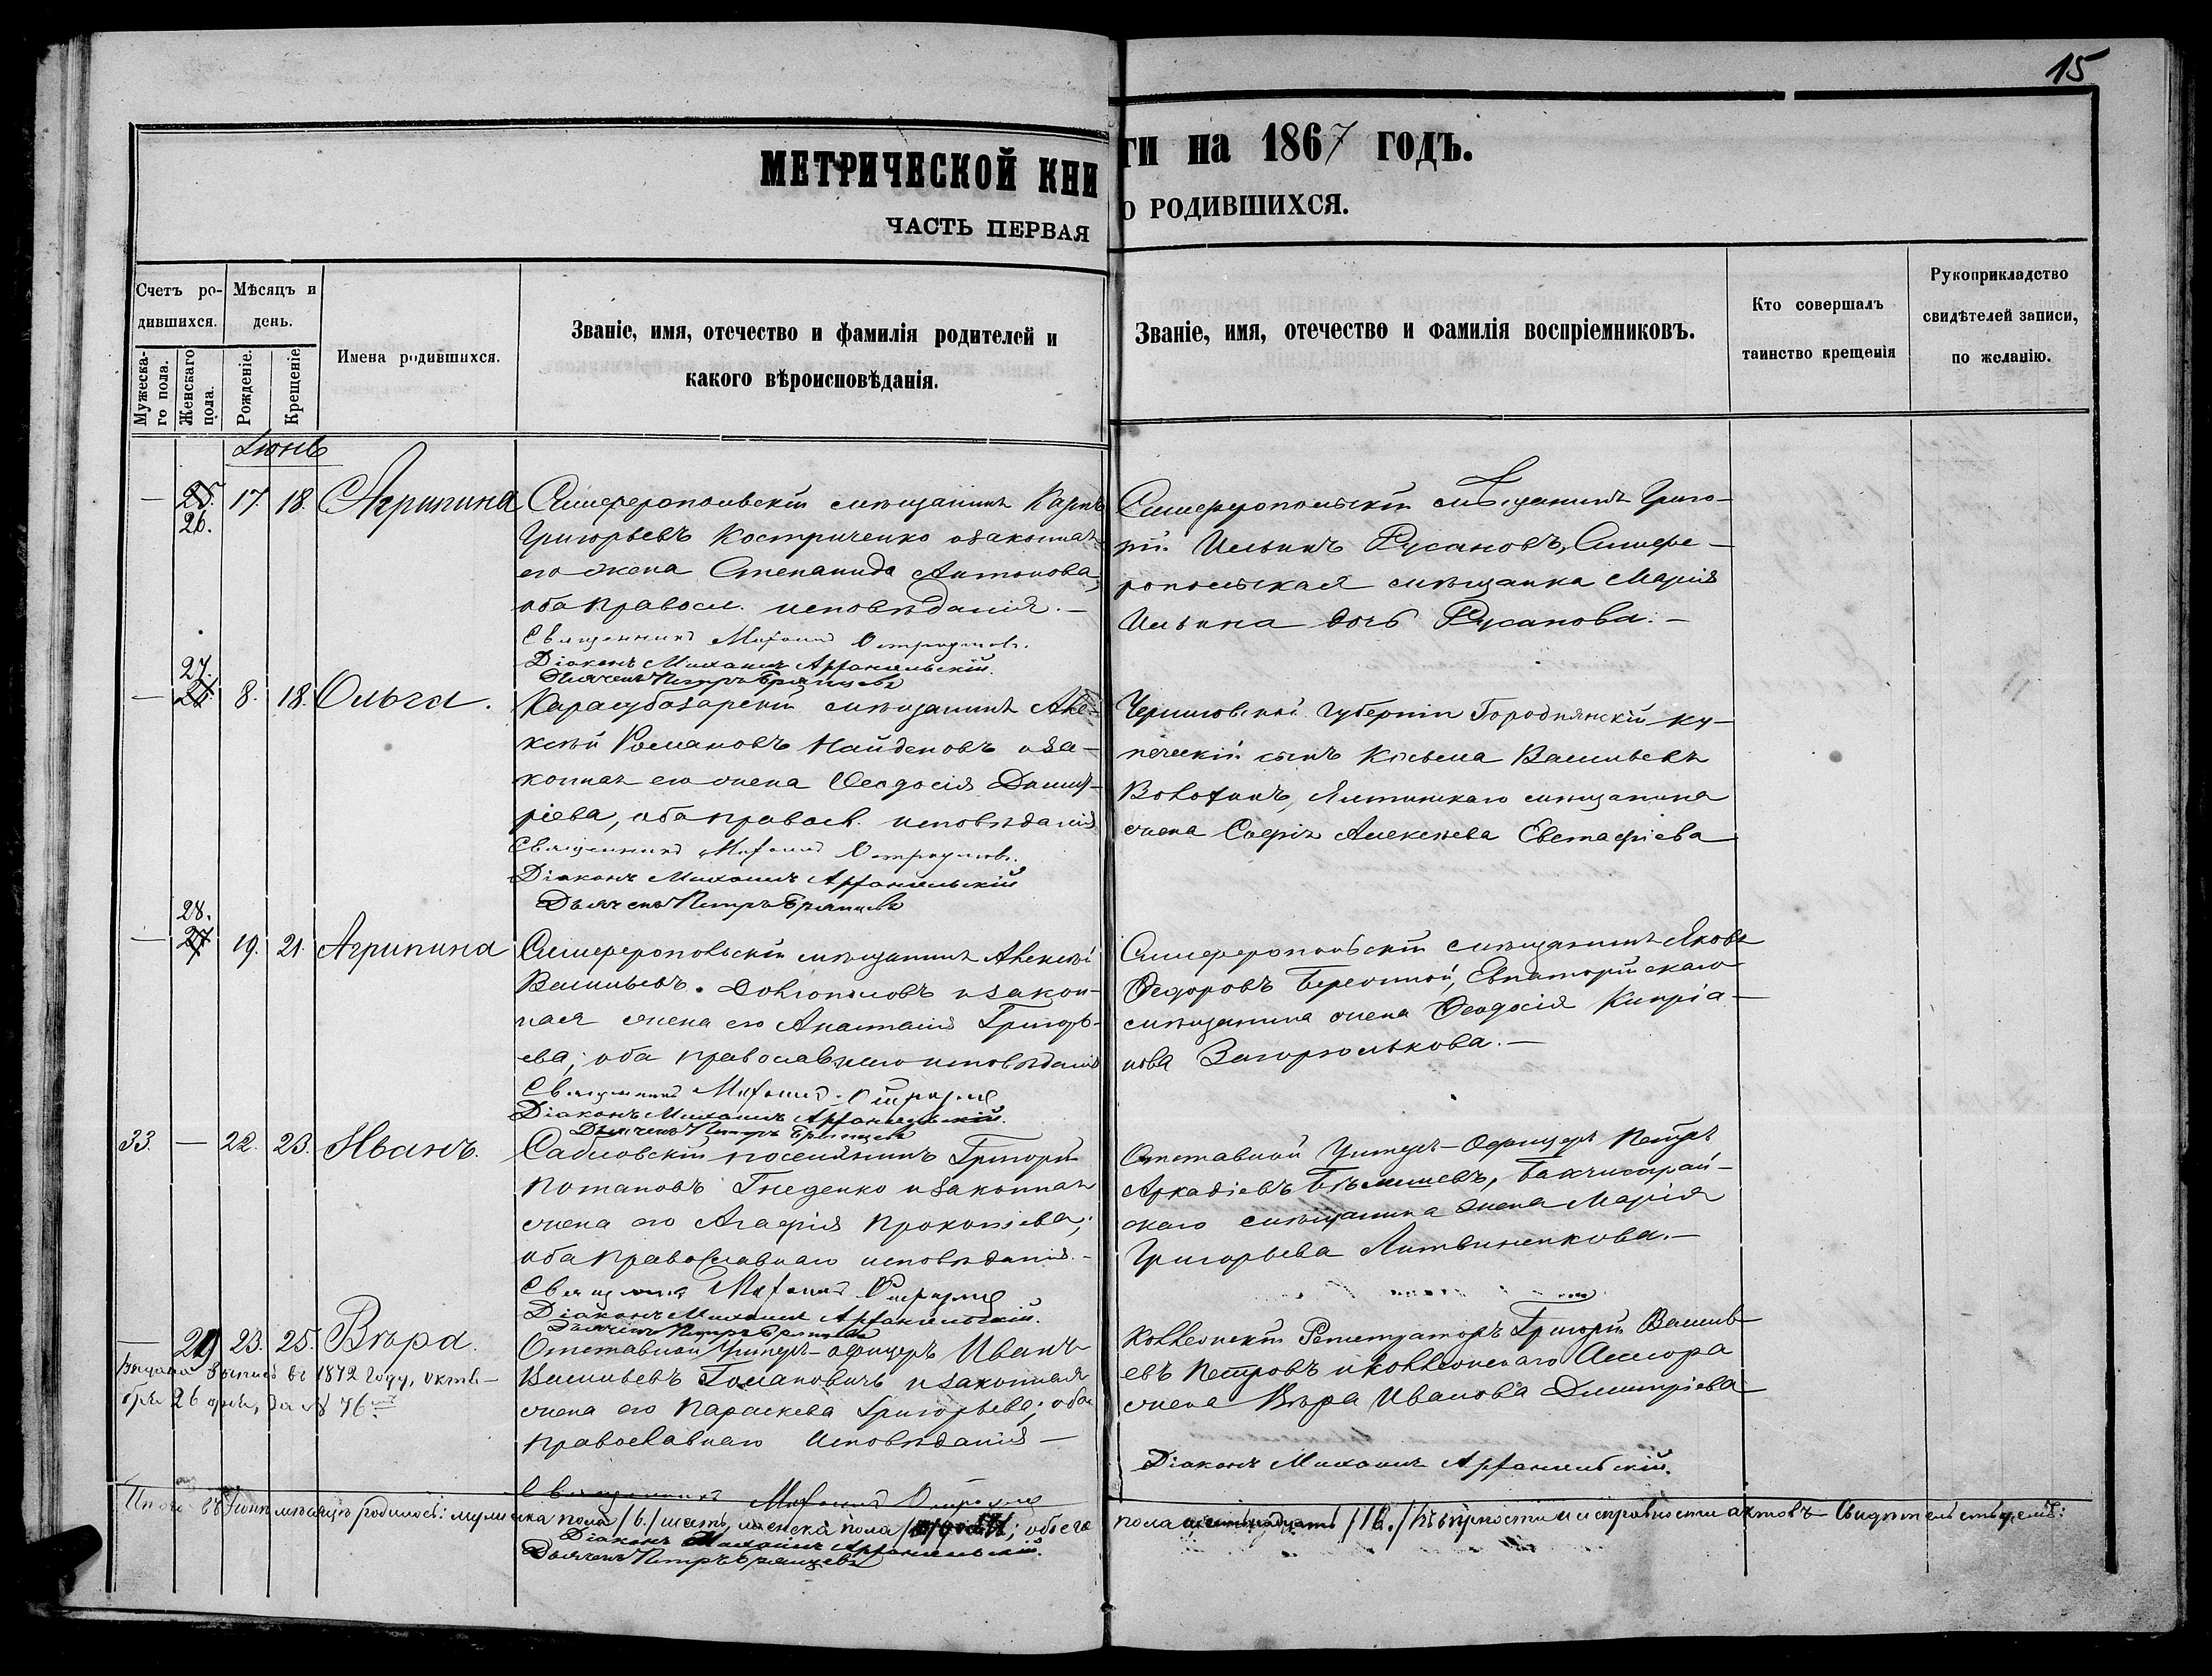 15
МЕТРИЧЕСКОЙ КНИГИ на 1867 годъ.
ЧАСТЬ ПЕРВАЯ О РОДИВШИХСЯ.
Счетъ родившихся.
Мужескаго пола.
Женскаго пола.
Мѣсяцъ и день.
Рожденіе.
Крещеніе.
Имена родившихся.
Званіе, имя, отечество и фамилія родителей и
какого вѣроисповѣданія.
Званіе, имя, отечество и фамилія воспріемниковъ.
Кто совершалъ
таинство крещенія
Рукоприкладство
свидѣтелей записи,
по желанію.
Іюнь
— 25. 26. 17. 18. Агрипина
Симферопольскій мѣщанинъ Карпъ
Григорьевъ Костриченко и законная
его жена Степанида Антонова,
оба правосл. исповѣданія. —
Священникъ
Діаконъ Михаилъ Архангельскій.
Дьячекъ Петръ Брянцевъ
Симферопольскій мѣщанинъ Григо-
рій Ильинъ Русановъ, Симфе-
ропольская мѣщанка Марія
Ильина дочь Русанова. —
— 27. 26. 8. 18. Ольга.
Карасубазарскій мѣщанинъ Але-
ксѣй Романовъ Найденовъ и за-
конная его жена Ѳеодосія Димит-
ріева, оба правосл. исповѣданія
Священникъ
Діаконъ Михаилъ Архангельскій
Дьячекъ Петръ Брянцевъ
Черниговской губерніи Городнянскій ку-
печескій сынъ Косьма Васильевъ
Ялтинскаго мѣщанина
жена Софія Алексѣева Евстафіева
— 28. 27 19. 21. Агрипина
Симферопольскій мѣщанинъ Алексѣй
Васильевъ Долгополовъ и закон-
ная жена его Анастасія Григорь-
ева, оба православнаго исповѣданія
Священникъ
Діаконъ Михаилъ Архангельскій.
Дьячекъ Петръ Брянцевъ
Симферопольскій мѣщанинъ Яковъ
Ѳедоровъ Евпаторійскаго
мѣщанина жена Ѳеодосія Кипріа-
нова
33. — 22. 23. Иванъ.
Сабловскій поселянинъ Григорій
Потаповъ Гнеденко и законная
жена его Агафія Прокопіева,
оба православнаго исповѣданія. —
Священникъ
Діаконъ Михаилъ Архангельскій.
Дьячекъ Петръ Брянцевъ
Отставной Унтеръ-Офицеръ Петръ
Аркадіевъ Бахчисарай-
скаго мѣщанина жена Марія
Григорьева Литвиненкова. —
— 29 23. 25. Вѣра.
Выдана выпись въ 1872 году, октя-
бря 26 дня, за № 76
Отставной Унтеръ-офицеръ Иванъ
Васильевъ Томановичъ и законная
жена его Параскева Григорьева, оба
православнаго исповѣданія —
Коллежскій Регистраторъ Григорій Василь-
евъ Петровъ и коллежскаго Ассесора
жена Вѣра Иванова Димитріева
Діаконъ Михаилъ Архангельскій.
Священникъ
Итого въ Іюнѣ мѣсяцѣ родилось: мужеска пола /6./ шесть, женска пола обоего
пола шестнадцать /16./ Вѣрности и исправности актовъ свидѣтельствуемъ:
Діаконъ Михаилъ Архангельскій.
Дьячекъ Петръ Брянцевъ